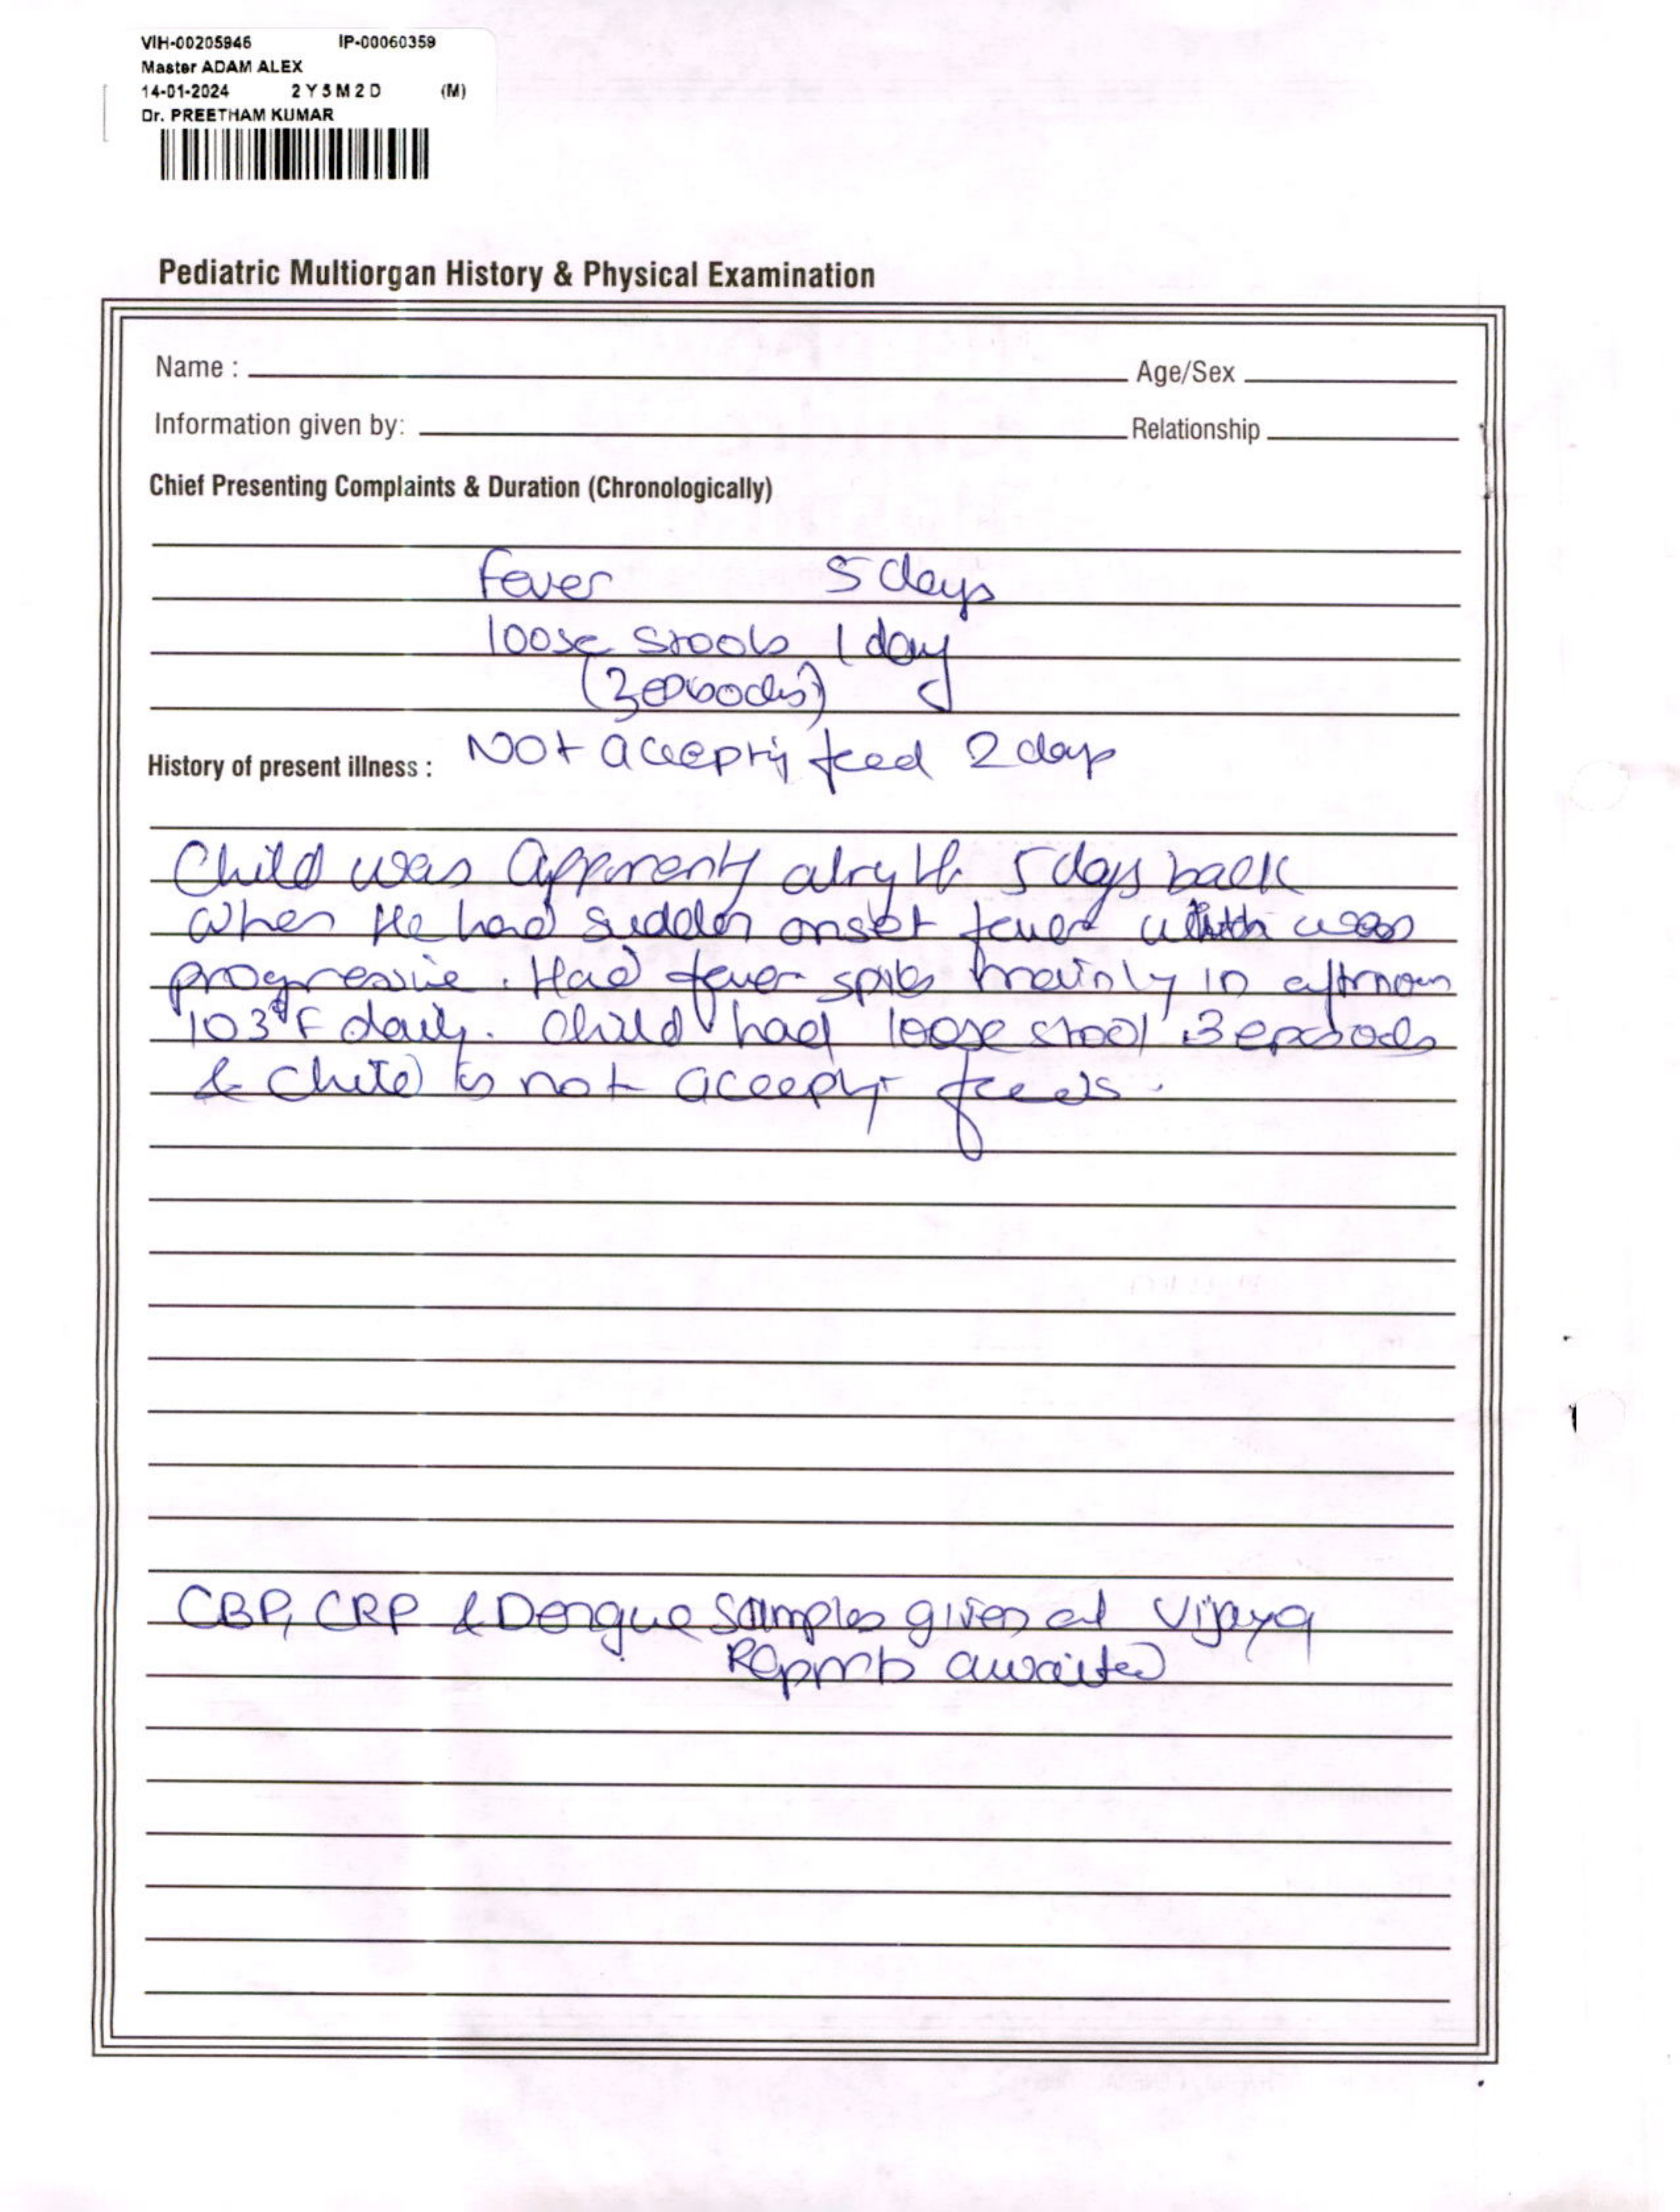 VIH-00205946 IP-00060359
Master ADAM ALEX
14-01-2024 2 Y 5 M 2 D (M)
Dr. PREETHAM KUMAR
Pediatric Multiorgan History & Physical Examination
Name : Age/Sex
Information given by: Relationship
Chief Presenting Complaints & Duration (Chronologically)
Fever 5 days
loose stools 1 day
(3 episodes)
Not accepting feed 2 days
History of present illness :
Child was apparently alright 5 days back
when He had sudden onset fever which was
progressive. Had fever spikes mainly in afternoon
103°F daily. Child had loose stool 3 episodes
& child is not accepting feeds.
CBP, CRP & Dengue samples given at Vijaya
Reports awaited